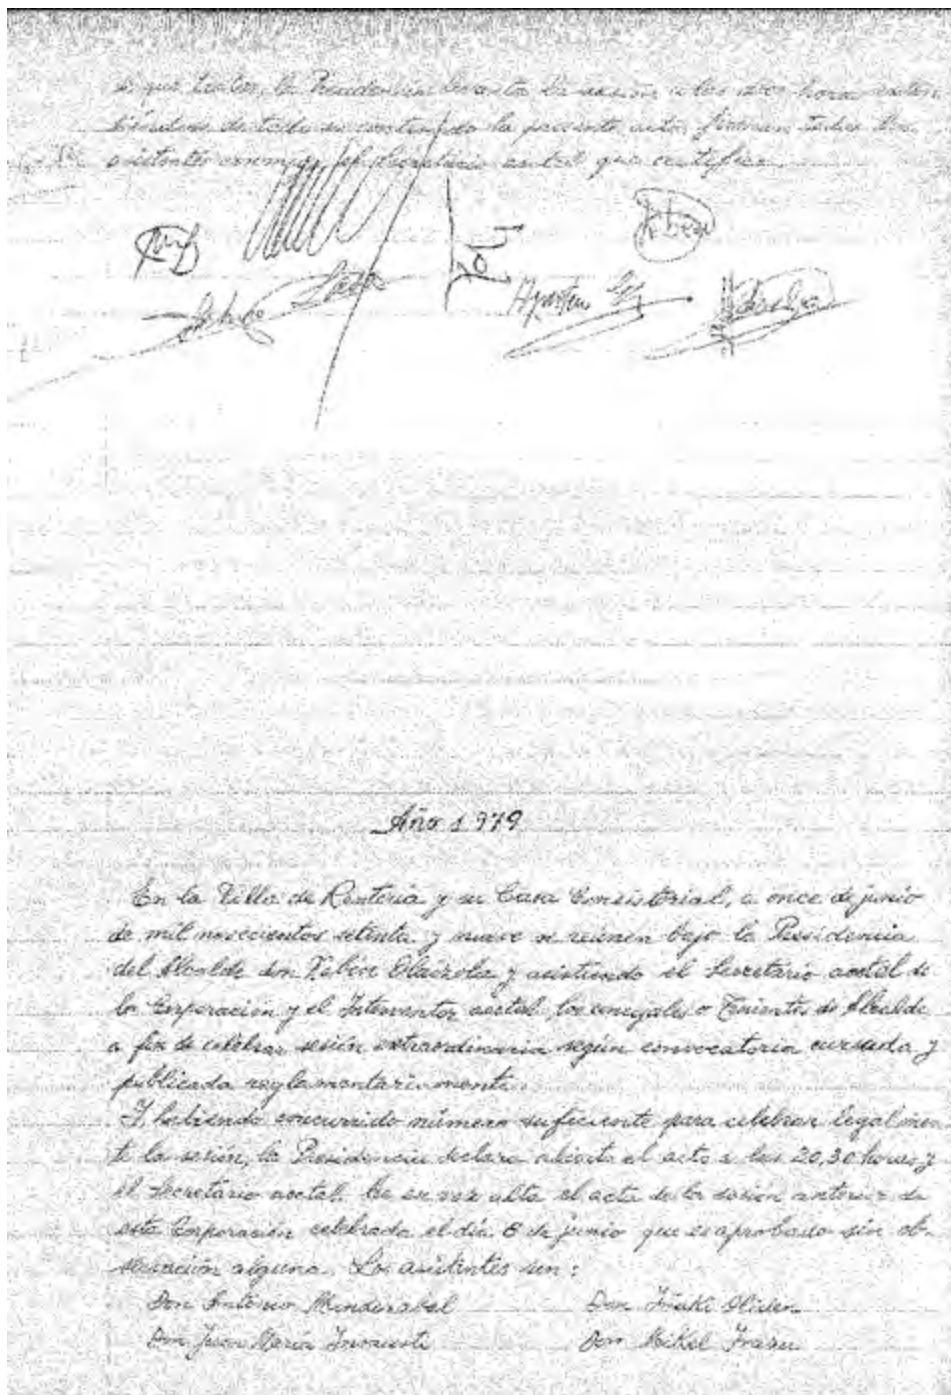 que tratar, la Presidencia levanta la sesión a las hora
de todo su contenido la presente acta, firman todos los
asistentes conmigo el Secretario acctal que certifica.
Año 1979
En la Villa de Rentería y su Casa Consistorial, a once de junio
de mil novecientos setenta y nueve se reúnen bajo la Presidencia
del Alcalde don Olaizola y asistiendo el Secretario acctal de
la Corporación y el Interventor acctal, los concejales o Tenientes de Alcalde
a fin de celebrar sesión extraordinaria según convocatoria cursada y
publicada reglamentariamente.
Y habiendo concurrido número suficiente para celebrar legalmen
te la sesión, la Presidencia declara abierto el acto a las 20,30 horas y
el Secretario acctal. lee en voz alta el acta de la sesión anterior de
esta Corporación celebrada el día 8 de junio que es aprobada sin ob-
servación alguna. Los asistentes son:
Don Antonio Mendizabal Don Iñaki Oliden
Don Juan María Don Mikel